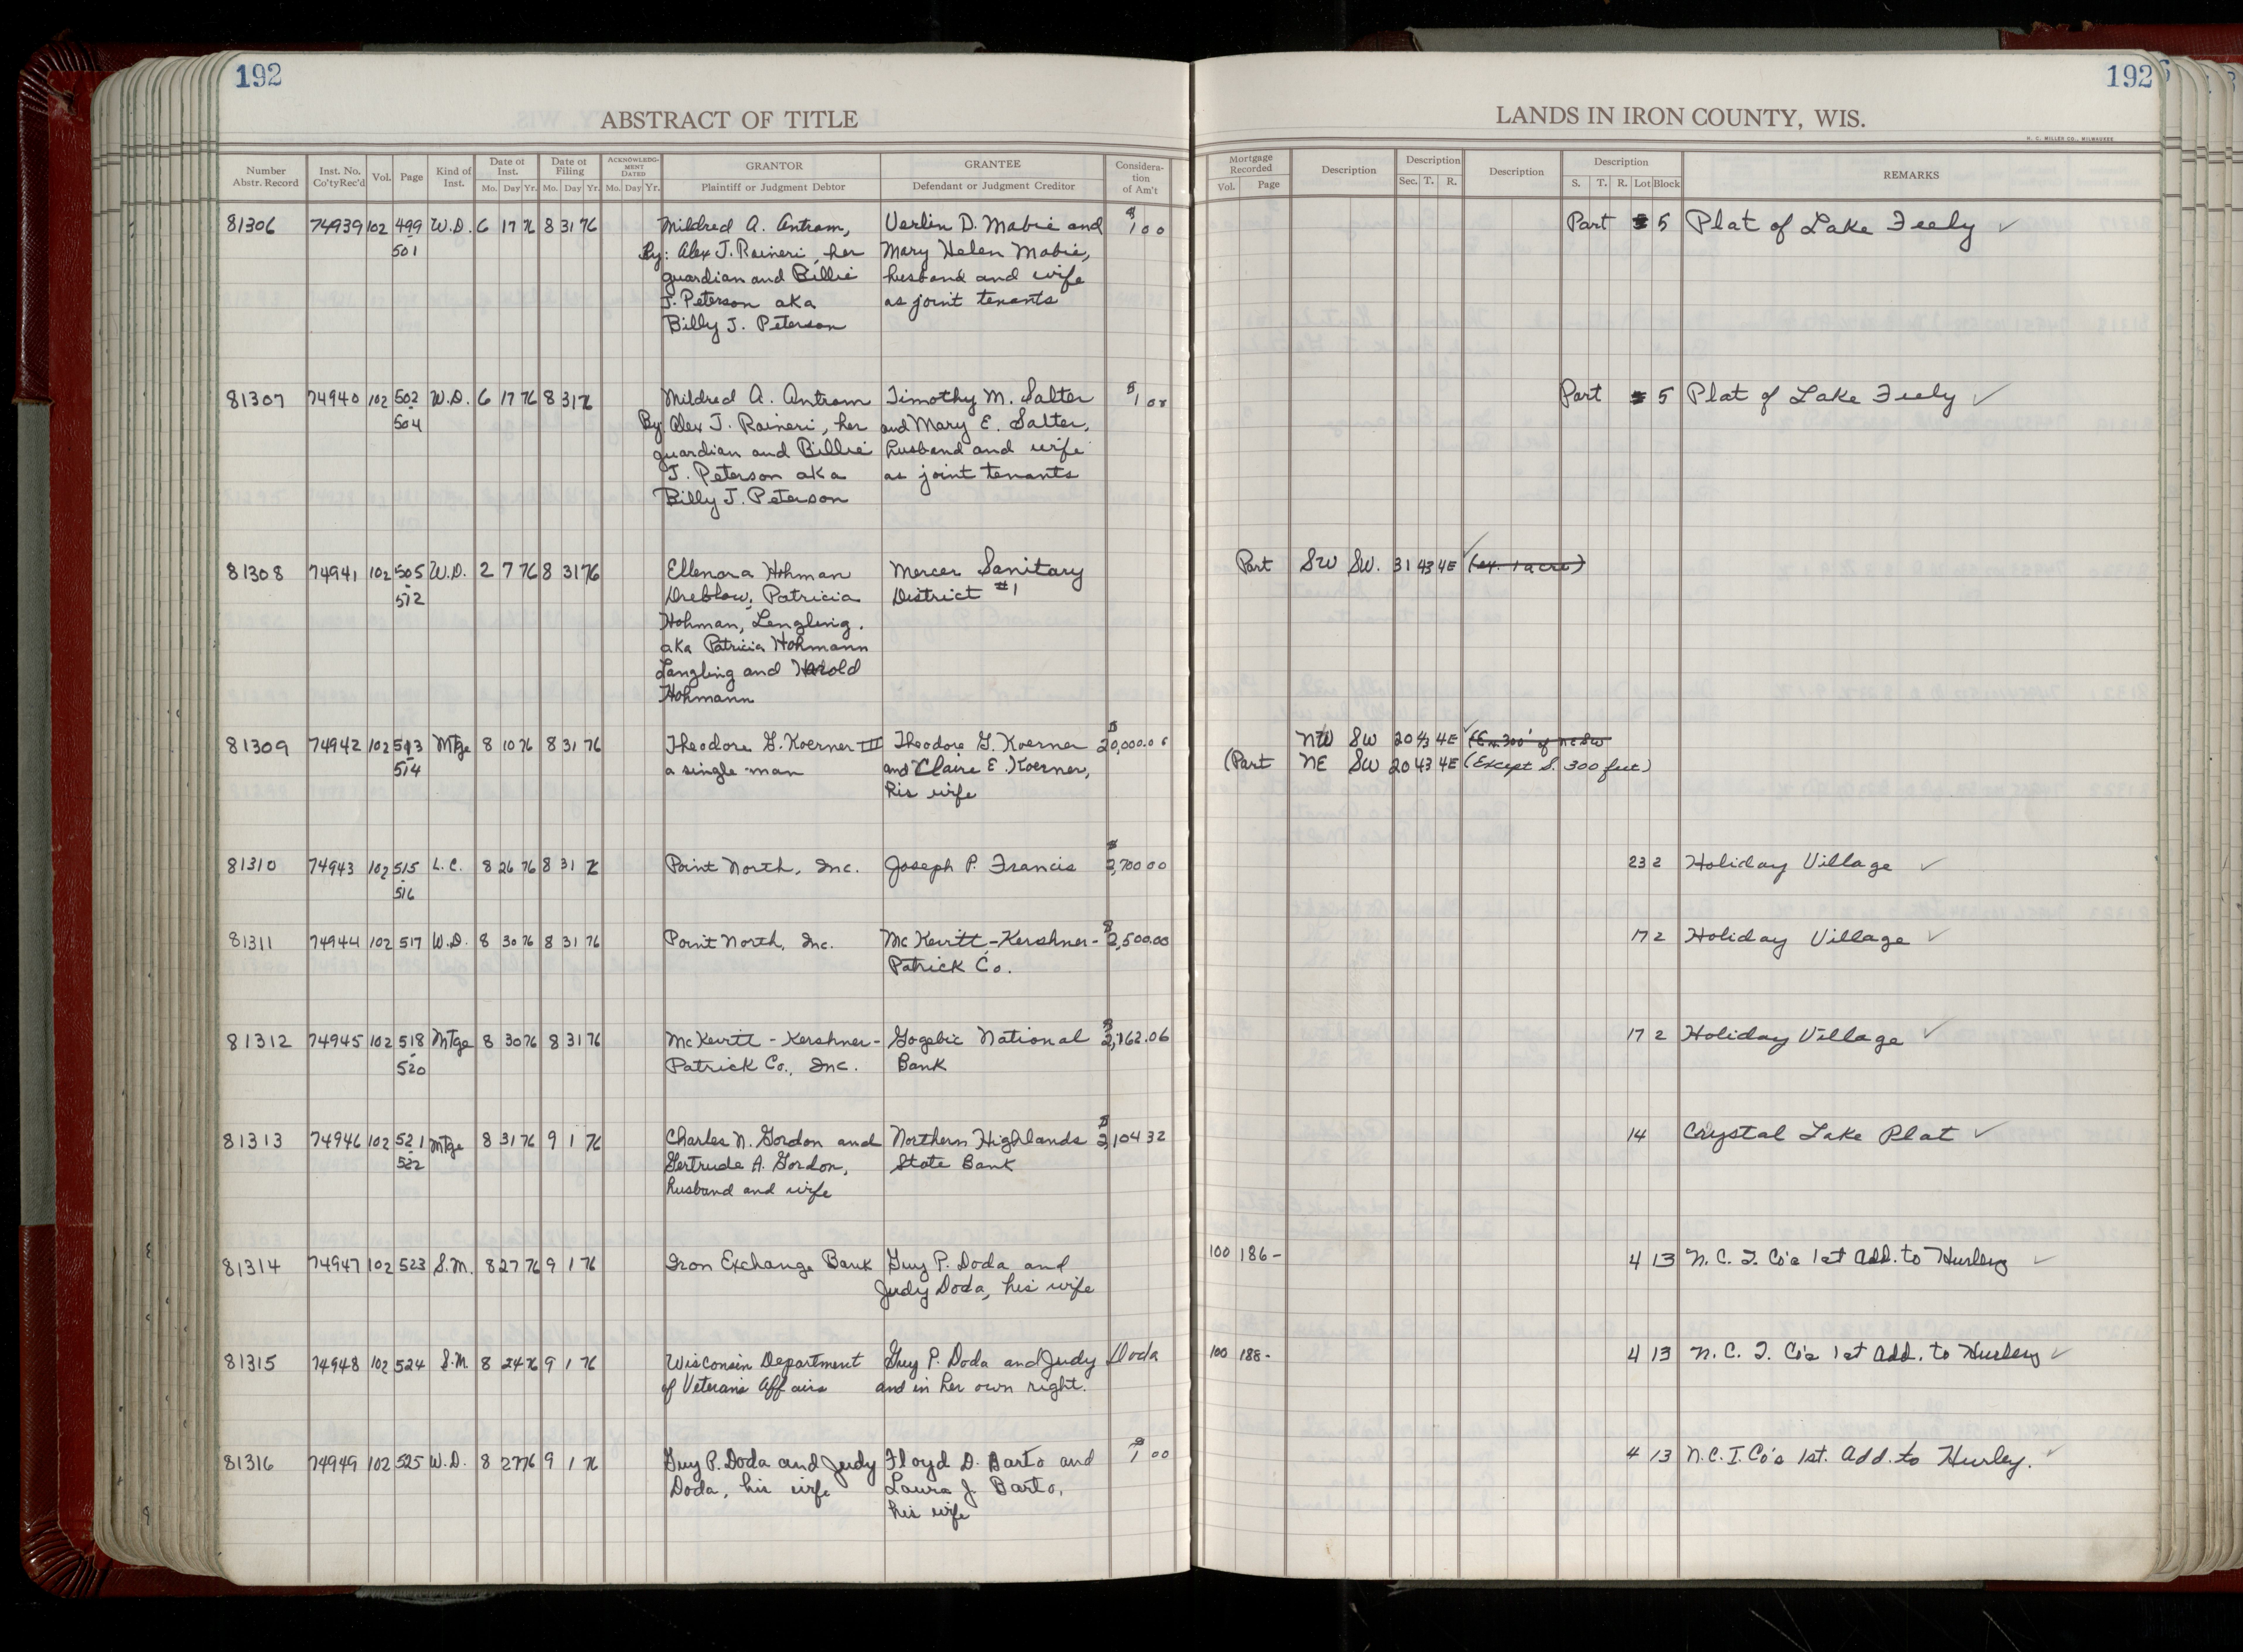 192
ABSTRACT OF TITLE
Number Abstr. Record | Inst. No. Co'ty Rec'd | Vol. | Page | Kind of Inst. | Date of Inst. Mo. Day Yr. | Date of Filing Mo. Day Yr. | ACKNOWLEDGMENT DATED Mo. Day Yr. | GRANTOR Plaintiff or Judgment Debtor | GRANTEE Defendant or Judgment Creditor | Consideration of Am't
81306 74939 102 499 W.D. 6 17 76 8 31 76 Mildred A. Antram, Verlin D. Mabie and $1 00
501 By: Alex J. Raineri, her Mary Helen Mabie,
guardian and Billie husband and wife
J. Peterson aka as joint tenants
Billy J. Peterson
81307 74940 102 502 W.D. 6 17 76 8 31 76 Mildred A. Antram Timothy M. Salter $1 00
504 By Alex J. Raineri, her and Mary E. Salter,
guardian and Billie husband and wife
J. Peterson aka as joint tenants
Billy J. Peterson
81308 74941 102 505 W.D. 2 7 76 8 31 76 Ellenora Hohman Mercer Sanitary
512 Dreblow, Patricia District #1
Hohman, Lengling.
aka Patricia Hohmann
Langling and Harold
Hohmann
81309 74942 102 513 Mtge 8 10 76 8 31 76 Theodore G. Koerner III Theodore G. Koerner $20,000.00
514 a single man and Claire E. Koerner,
his wife
81310 74943 102 515 L.C. 8 26 76 8 31 76 Point North, Inc. Joseph P. Francis $2,700 00
516
81311 74944 102 517 W.D. 8 30 76 8 31 76 Point North, Inc. McKevitt-Kershner- $2,500.00
Patrick Co.
81312 74945 102 518 Mtge 8 30 76 8 31 76 McKevitt - Kershner- Gogebic National $2,162.06
520 Patrick Co., Inc. Bank
81313 74946 102 521 Mtge 8 31 76 9 1 76 Charles N. Gordon and Northern Highlands $2,104 32
522 Gertrude A. Gordon, State Bank
husband and wife
81314 74947 102 523 S.M. 8 27 76 9 1 76 Iron Exchange Bank Guy P. Doda and
Judy Doda, his wife
81315 74948 102 524 S.M. 8 24 76 9 1 76 Wisconsin Department Guy P. Doda and Judy Doda
of Veterans Affairs and in her own right.
81316 74949 102 525 W.D. 8 27 76 9 1 76 Guy P. Doda and Judy Floyd D. Barto and $1 00
Doda, his wife Laura J. Barto,
his wife
192
LANDS IN IRON COUNTY, WIS.
H. C. MILLER CO., MILWAUKEE
Mortgage Recorded Vol. Page | Description | Description Sec. T. R. | Description | Description S. T. R. Lot Block | REMARKS
Part 5 Plat of Lake Feely ✓
Part 5 Plat of Lake Feely ✓
Part SW SW. 31 43 4E ✓ (ex. 1 acre)
NW SW 20 43 4E ✓ (Ex. 300' of NE SW
(Part NE SW 20 43 4E (Except S. 300 feet)
23 2 Holiday Village ✓
17 2 Holiday Village ✓
17 2 Holiday Village ✓
14 Crystal Lake Plat ✓
100 186- 4 13 N. C. I. Co's 1st Add. to Hurley ✓
100 188- 4 13 N. C. I. Co's 1st Add. to Hurley ✓
4 13 N.C.I. Co's 1st. Add. to Hurley. ✓